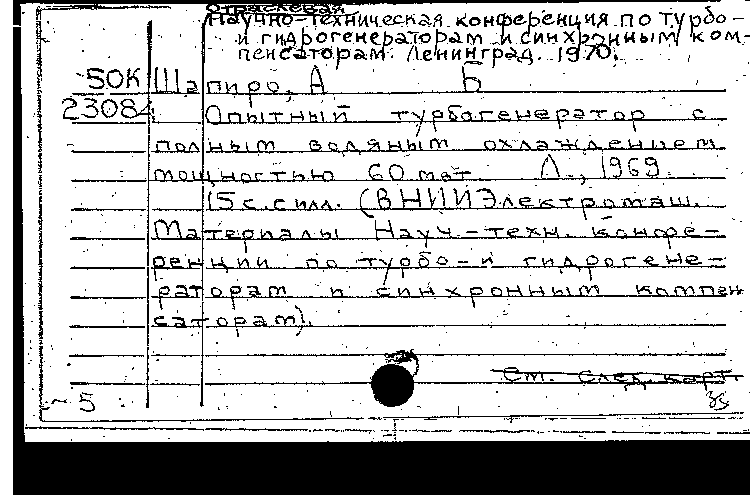 Отраслевая
Научно-техническая конференция по турбо-
и гидрогенераторам и синхронным ком-
пенсаторам. Ленинград. 1970.
БОК Шапиро, А Б
23084 Опытный турбогенератор с
полным водяным охлаждением
мощностью 60 мвт. Л., 1969.
15 с. с илл. (ВНИИЭлектромаш.
Материалы Науч-техн. конфе-
ренции по турбо-и гидрогене-
раторам и синхронным компен
саторам).
См. след. карт.
5